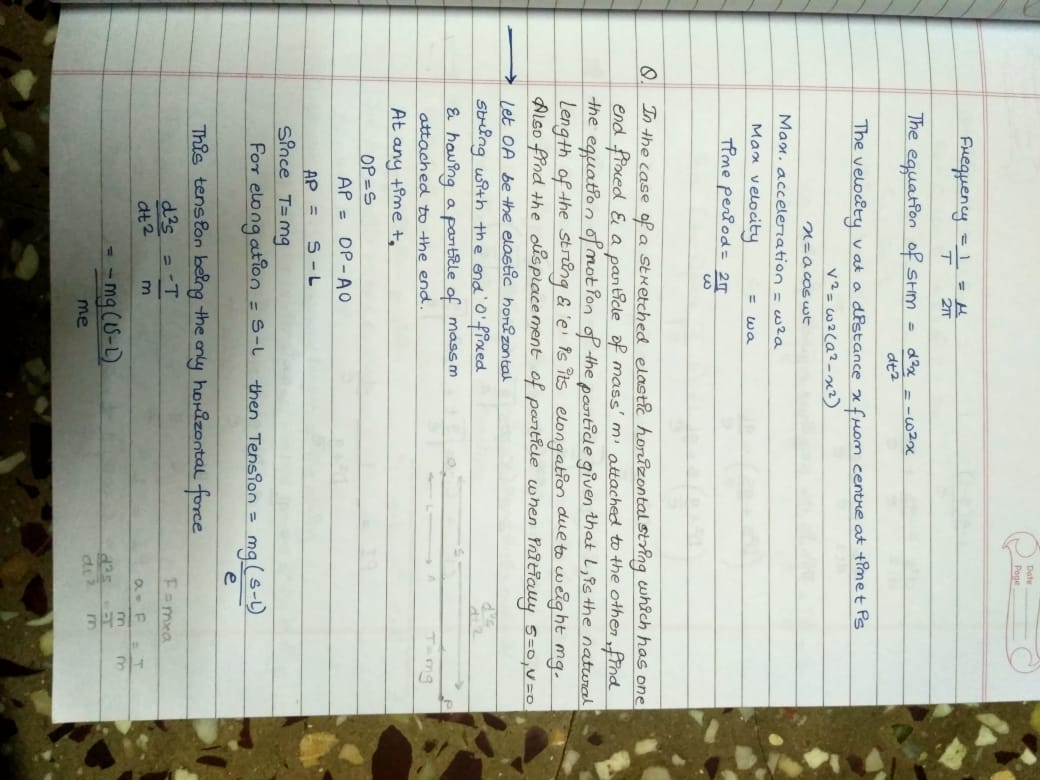 Date
Page
Frequency = 1/T = μ/2π
The equation of SHM = d²x/dt² = -ω²x
The velocity v at a distance x from centre at time t is
V² = ω²(a²-x²)
x = a cos ωt
Max. acceleration = ω²a
Max velocity = ωa
Time period = 2π/ω
Q. In the case of a stretched elastic horizontal string which has one
end fixed & a particle of mass 'm' attached to the other, find
the equation of motion of the particle given that L, is the natural
Length of the string & 'e' is its elongation due to weight mg.
Also find the displacement of particle when initially S=0, V=0
→ Let OA be the elastic horizontal
string with the end 'O' fixed
& having a particle of mass m
attached to the end.
d²s/dt²
S
O P
L A T=mg
At any time t,
OP = S
AP = OP - AO
AP = S - L
Since T = mg
For elongation = S-L then Tension = mg(S-L)/e
This tension being the only horizontal force
d²s/dt² = -T/m
= -mg(S-L)/me
F = m×a
a = F/m = T/m
d²s/dt² = -T/m